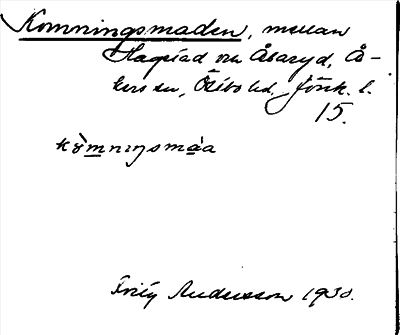 Komningsmaden, mellan
Hagstad och Åbaryd, Å-
kers sn, Östbo hd, Jönk. l.
15.
kòmnıŋsmàa
Fritz Andersson 1930.